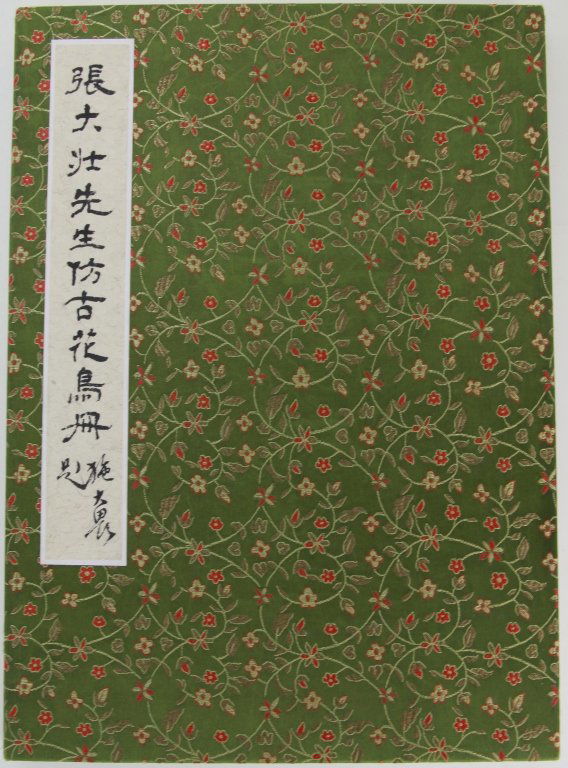 張大壯先生仿古花鳥冊
施大畏
題